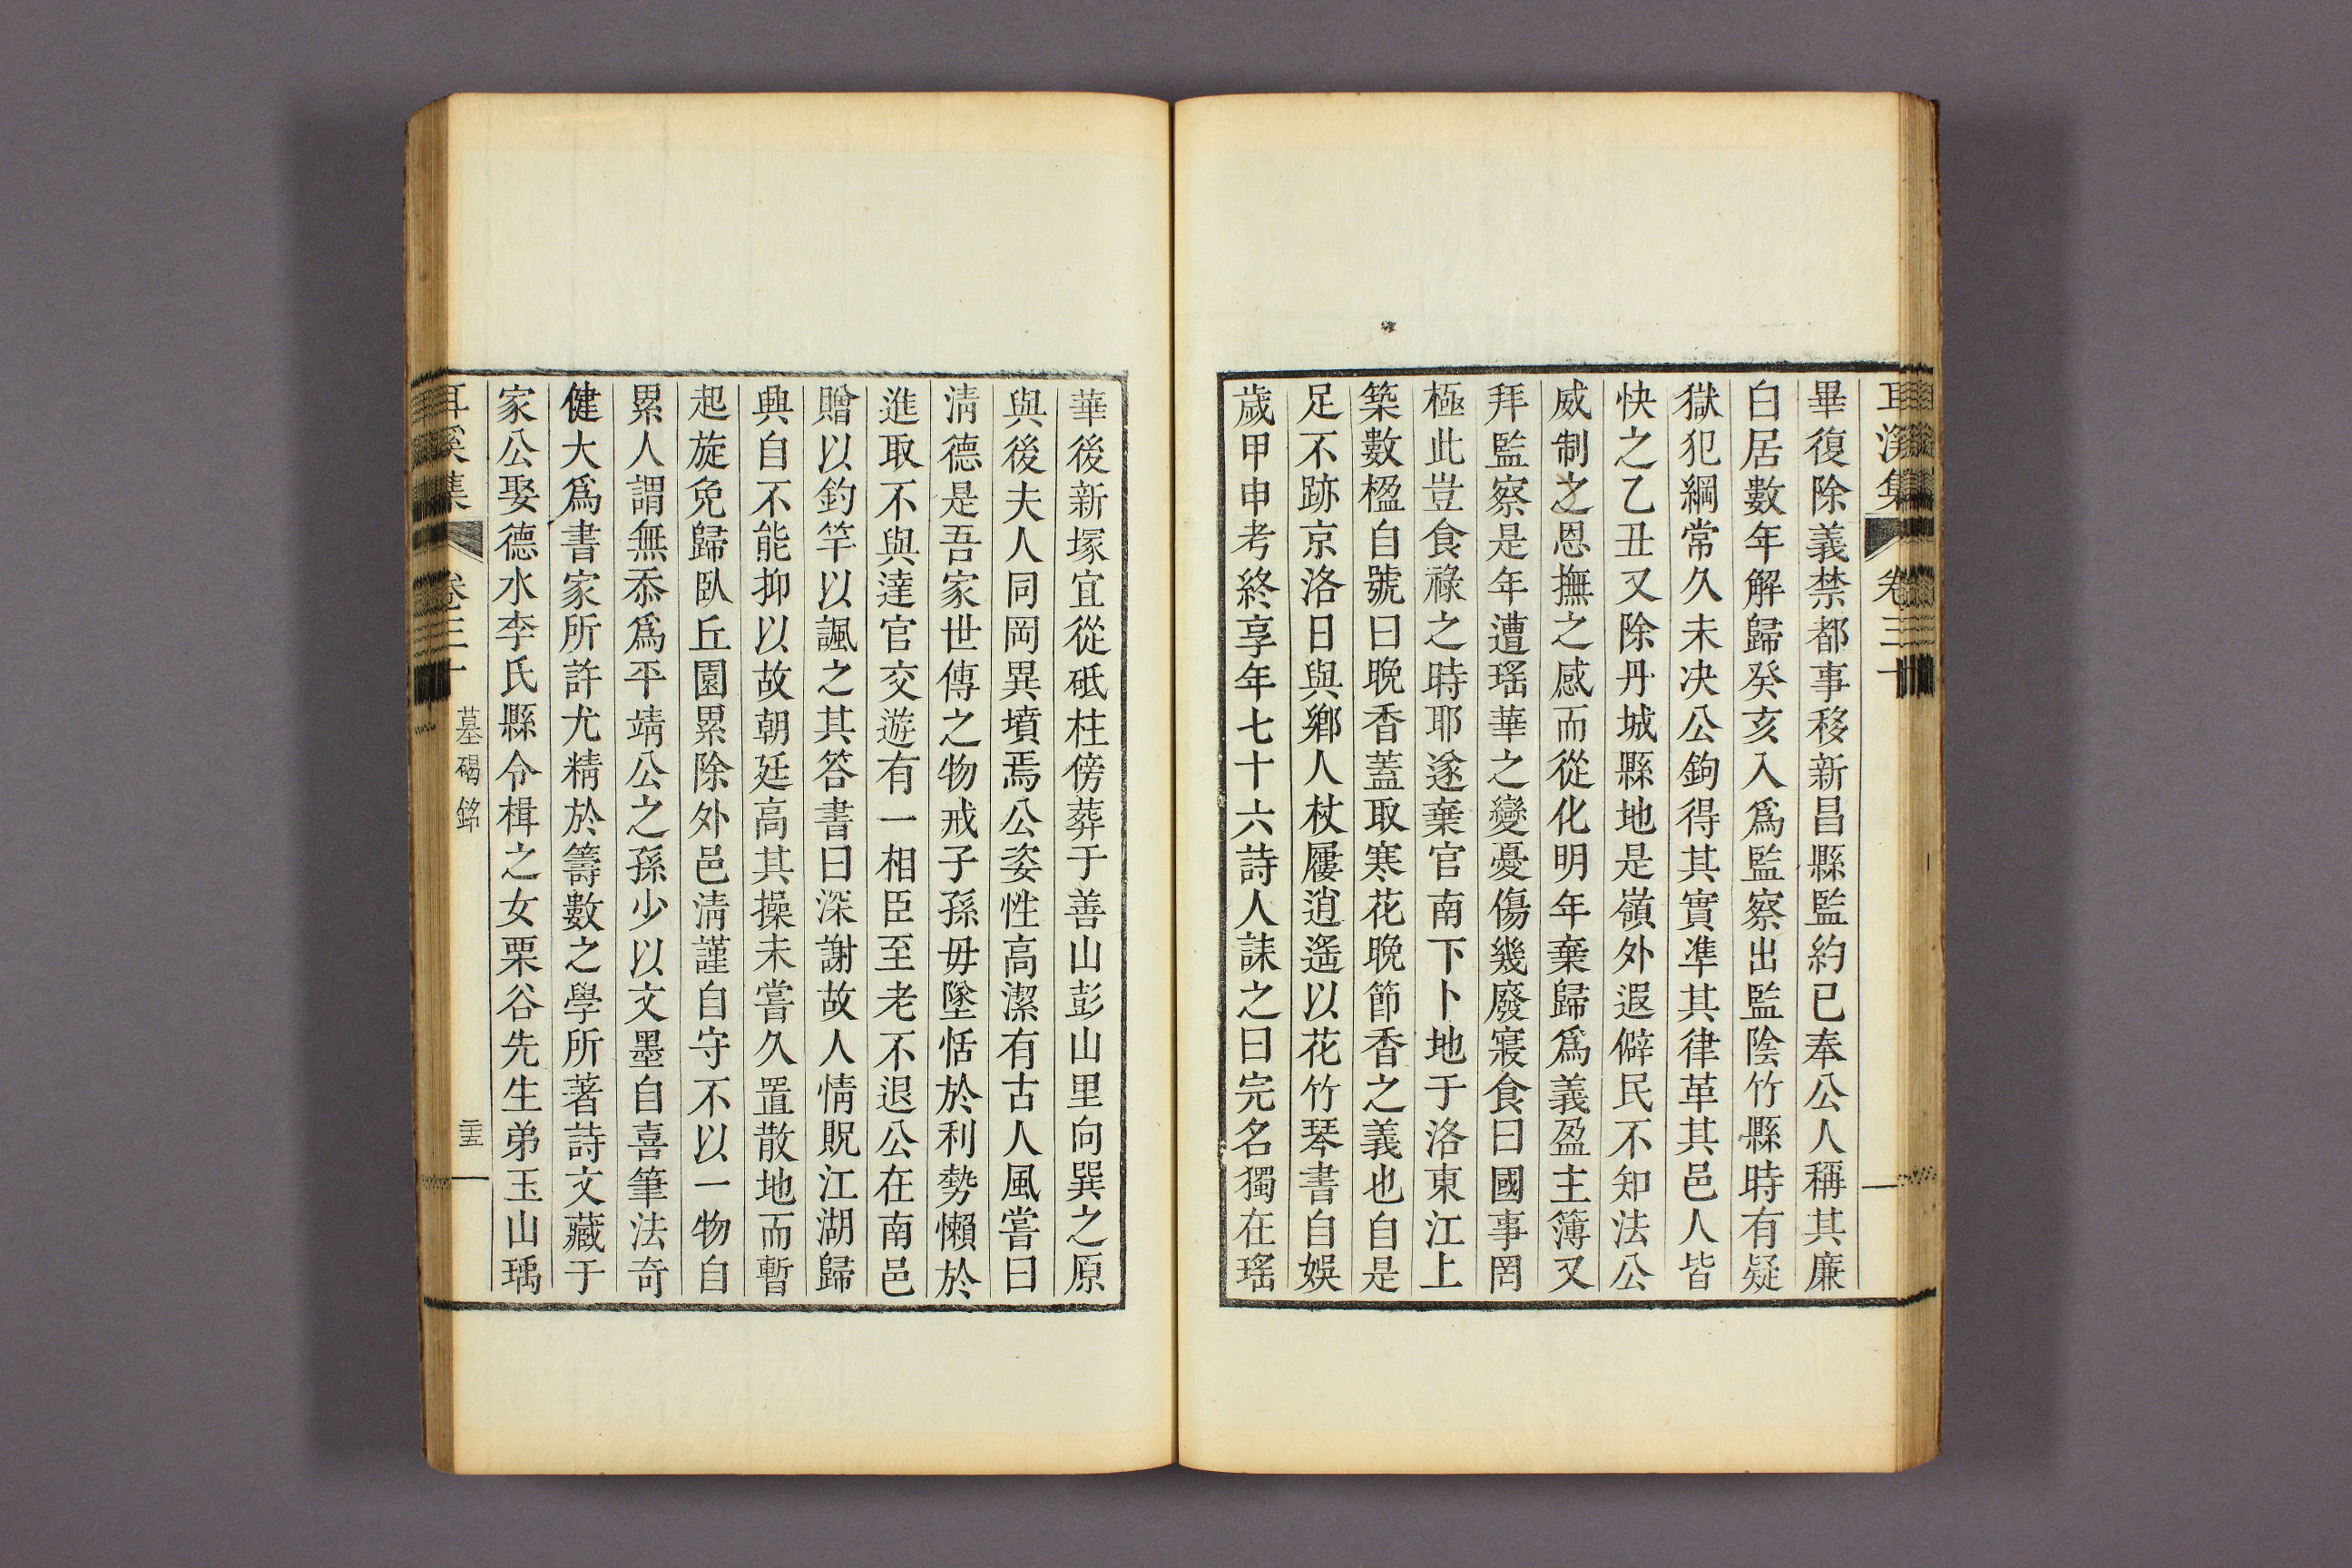 耳溪集 卷三十
畢復除義禁都事移新昌縣監約已奉公人稱其廉
白居數年解歸癸亥入爲監察出監陰竹縣時有疑
獄犯綱常久未决公鉤得其實準其律革其邑人皆
快之乙丑又除丹城縣地是嶺外遐僻民不知法公
威制之恩撫之感而從化明年棄歸爲義盈主簿又
拜監察是年遭瑤華之變憂傷幾廢寢食曰國事罔
極此豈食祿之時耶遂棄官南下卜地于洛東江上
築數楹自號曰晩香蓋取寒花晩節香之義也自是
足不跡京洛日與鄕人杖屨逍遙以花竹琴書自娛
歲甲申考終享年七十六詩人誄之曰完名獨在瑤
華後新塚宜從砥柱傍葬于善山彭山里向巽之原
與後夫人同岡異墳焉公姿性高潔有古人風嘗曰
淸德是吾家世傳之物戒子孫毋墜恬於利勢懶於
進取不與達官交遊有一相臣至老不退公在南邑
贈以釣竿以諷之其答書曰深謝故人情貺江湖歸
興自不能抑以故朝廷高其操未嘗久置散地而暫
起旋免歸臥丘園累除外邑淸謹自守不以一物自
累人謂無忝爲平靖公之孫少以文墨自喜筆法奇
健大爲書家所許尤精於籌數之學所著詩文藏于
家公娶德水李氏縣令楫之女栗谷先生弟玉山瑀
耳溪集 卷三十 墓碣銘 二十五